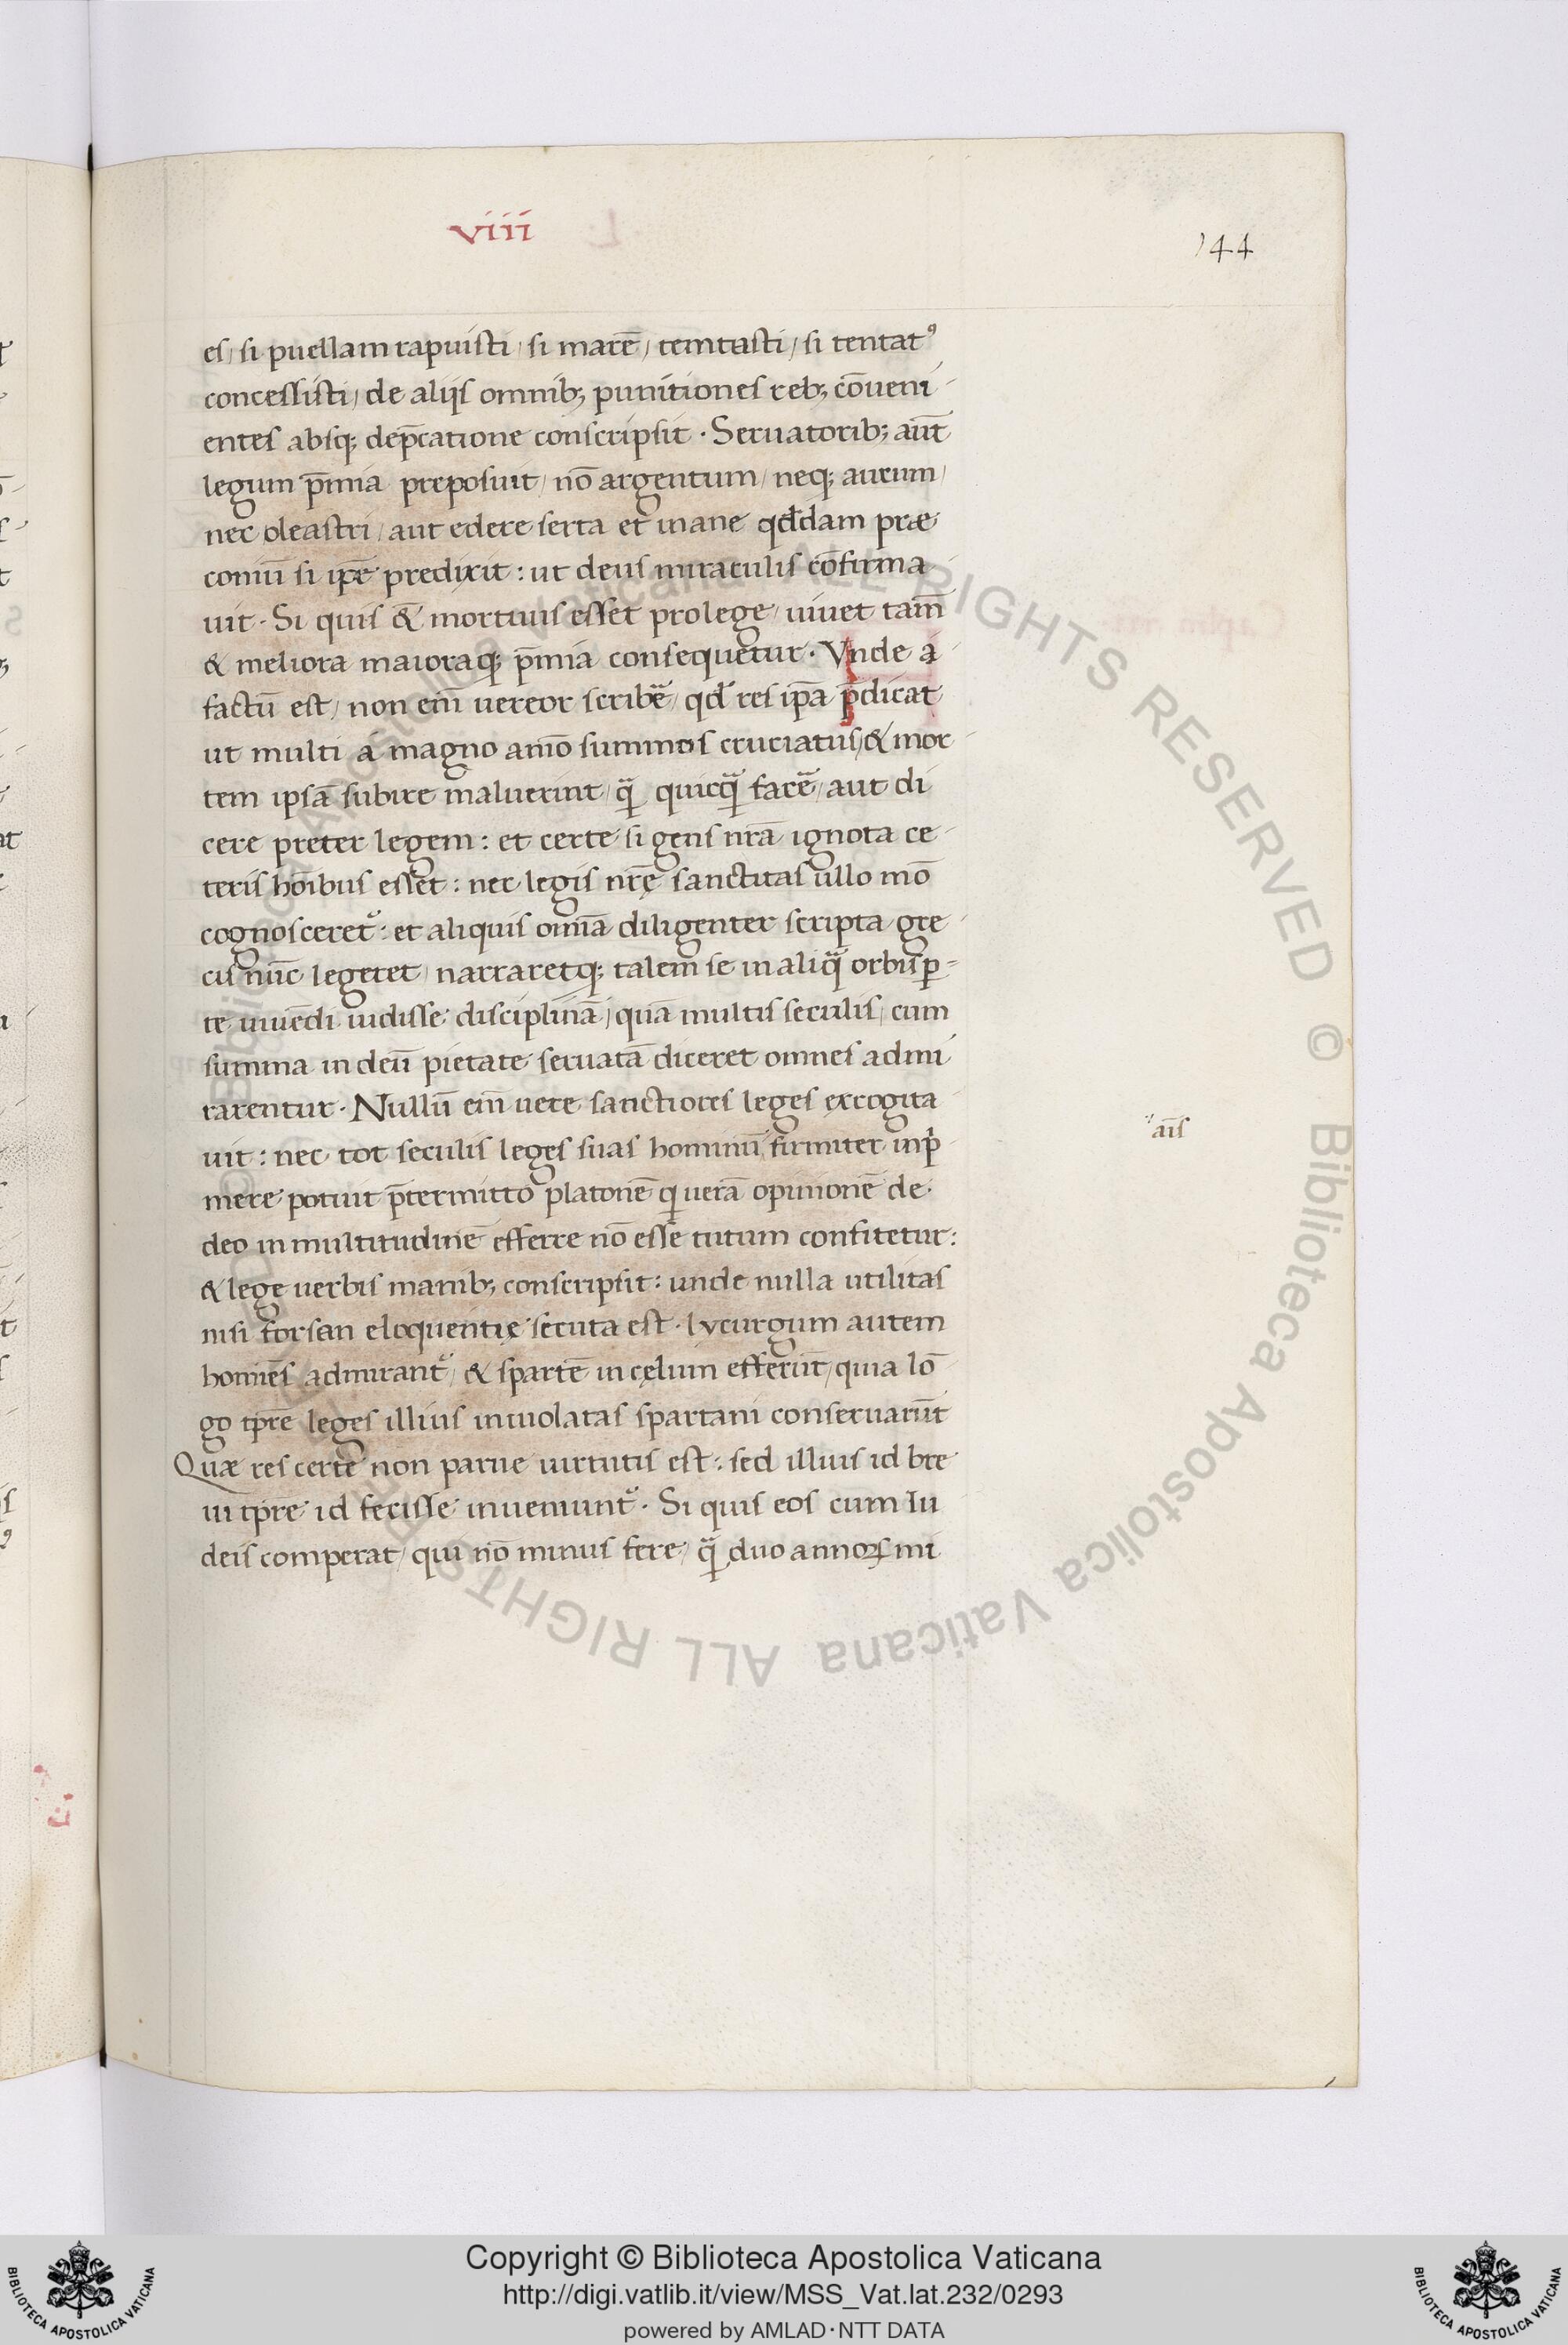 viii
144
es, si puellam rapuisti, si marē, temtasti, si tentatꝰ
concessisti, de aliis omnib; punitiones reb; cōueni
entes absq; dep̄catione conscripsit. Seruatorib; aut̄
legum p̄mia preposuit, nō argentum, neq; aurum,
nec oleastri, aut edere serta et inane qd̄dam præ
coniū si ip̄e predixit: ut deus miraculis cōfirma
uit. Si quis & mortuus esset pro lege, uiuet tam̄
& meliora maioraq; p̄mia consequetur. Vnde á
factū est, non em̄ uereor scribeᷓ, qd̄ res ip̄a p̄dicat
ut multi á magno amō summos cruciatus, & mor
tem ipsā subire maluerint, qᷓ quicqᷓ faceᷓ, aut di
cere preter legem: et certe si gens nr̄a ignota ce
teris hoībus esset: nec legis nr̄ę sanctitas ullo mō
cognosceret᷑: et aliquis om̄ia diligenter scripta gre
cis nūc legeret, narraretq; talem se in aliqᷓ orbis ꝑ
te uiuēdi uidisse disciplinā, quā multis seculis, cum
summa in deū pietate seruatā diceret omnes admi
rarentur. Nullū em̄ uere sanctiores leges excogita
uit: nec tot seculis leges suas hominū firmiter inp̍
mere potuit p̄termitto platonē qͥ uerā opinionē de
deo in multitudinē efferre nō esse tutum confitetur:
& lege uerbis manib; conscripsit: unde nulla utilitas
nisi forsan eloquentię secuta est. Lycurgum autem
homīes admirant᷑, & spartē in cęlum efferūt, quia lō
go tp̄re leges illius inuiolatas spartani conseruarūt
Quæ res certe non parue uirtutis est: sed illius id bre
ui tp̄re id fecisse inueniunt᷑. Si quis eos cum Iu
deis comperat, qui nō minus fere, qᷓ duo annoꝝ mi
aīs
Copyright © Biblioteca Apostolica Vaticana
http://digi.vatlib.it/view/MSS_Vat.lat.232/0293
powered by AMLAD·NTT DATA